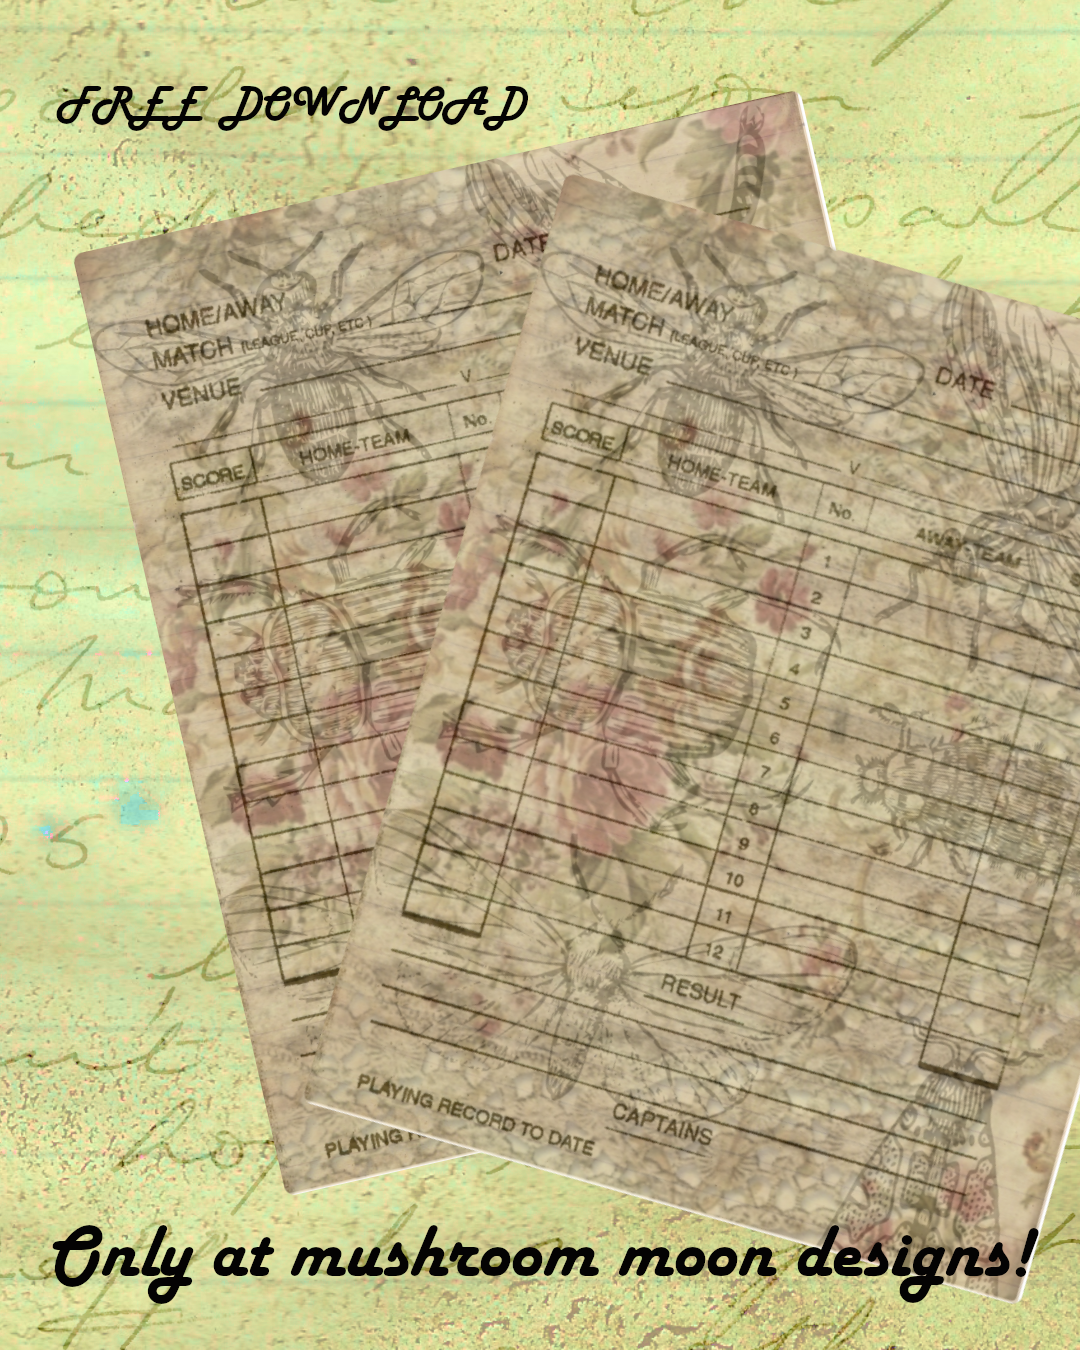 FREE DOWNLOAD
DATE
HOME/AWAY
MATCH (LEAGUE, CUP, ETC)
VENUE
V
SCORE
HOME-TEAM
No.
PLAYING
HOME/AWAY
MATCH (LEAGUE, CUP, ETC)
VENUE
DATE
V
SCORE
HOME-TEAM
No.
AWAY-TEAM
1
2
3
4
5
6
7
8
9
10
11
12
RESULT
PLAYING RECORD TO DATE
CAPTAINS
Only at mushroom moon designs!